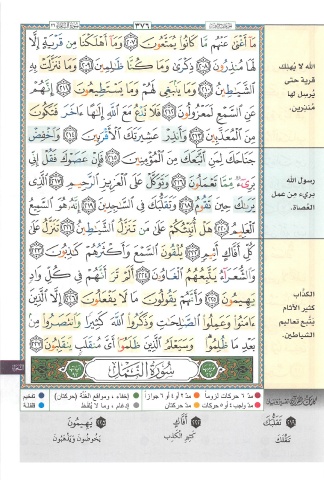 ٣٧٦
مَآ أَغْنَىٰ عَنْهُم مَّا كَانُوا۟ يُمَتَّعُونَ ٢٠٧ وَمَآ أَهْلَكْنَا مِن قَرْيَةٍ إِلَّا
لَهَا مُنذِرُونَ ٢٠٨ ذِكْرَىٰ وَمَا كُنَّا ظَٰلِمِينَ ٢٠٩ وَمَا تَنَزَّلَتْ بِهِ
ٱلشَّيَٰطِينُ ٢١٠ وَمَا يَنۢبَغِى لَهُمْ وَمَا يَسْتَطِيعُونَ ٢١١ إِنَّهُمْ
عَنِ ٱلسَّمْعِ لَمَعْزُولُونَ ٢١٢ فَلَا تَدْعُ مَعَ ٱللَّهِ إِلَٰهًا ءَاخَرَ فَتَكُونَ
مِنَ ٱلْمُعَذَّبِينَ ٢١٣ وَأَنذِرْ عَشِيرَتَكَ ٱلْأَقْرَبِينَ ٢١٤ وَٱخْفِضْ
جَنَاحَكَ لِمَنِ ٱتَّبَعَكَ مِنَ ٱلْمُؤْمِنِينَ ٢١٥ فَإِنْ عَصَوْكَ فَقُلْ إِنِّى
بَرِىٓءٌ مِّمَّا تَعْمَلُونَ ٢١٦ وَتَوَكَّلْ عَلَى ٱلْعَزِيزِ ٱلرَّحِيمِ ٢١٧ ٱلَّذِى
يَرَىٰكَ حِينَ تَقُومُ ٢١٨ وَتَقَلُّبَكَ فِى ٱلسَّٰجِدِينَ ٢١٩ إِنَّهُۥ هُوَ ٱلسَّمِيعُ
ٱلْعَلِيمُ ٢٢٠ هَلْ أُنَبِّئُكُمْ عَلَىٰ مَن تَنَزَّلُ ٱلشَّيَٰطِينُ ٢٢١ تَنَزَّلُ عَلَىٰ
كُلِّ أَفَّاكٍ أَثِيمٍ ٢٢٢ يُلْقُونَ ٱلسَّمْعَ وَأَكْثَرُهُمْ كَٰذِبُونَ ٢٢٣
وَٱلشُّعَرَآءُ يَتَّبِعُهُمُ ٱلْغَاوُۥنَ ٢٢٤ أَلَمْ تَرَ أَنَّهُمْ فِى كُلِّ وَادٍ
يَهِيمُونَ ٢٢٥ وَأَنَّهُمْ يَقُولُونَ مَا لَا يَفْعَلُونَ ٢٢٦ إِلَّا ٱلَّذِينَ
ءَامَنُوا۟ وَعَمِلُوا۟ ٱلصَّٰلِحَٰتِ وَذَكَرُوا۟ ٱللَّهَ كَثِيرًا وَٱنتَصَرُوا۟ مِنۢ
بَعْدِ مَا ظُلِمُوا۟ وَسَيَعْلَمُ ٱلَّذِينَ ظَلَمُوٓا۟ أَىَّ مُنقَلَبٍ يَنقَلِبُونَ ٢٢٧
سُورَةُ النَّمْلِ
الله لا يُهلِك
قرية حتى
يُرسل لها
مُنذِرين.
رسول الله
بريء من عمل
العُصاة.
الكذّاب
كثير الآثام
يتّبع تعاليم
الشياطين.
مدّ ٦ حركات لزوماً
مدّ ٢ أو ٤ أو ٦ جوازاً
إخفاء، ومواقع الغُنَّة (حركتان)
تفخيم
مدّ واجب ٤ أو ٥ حركات
مدّ حركتان
إدغام، وما لا يُلفَظ
قلقلة
تَقَلُّبَكَ
تَنَقُّلَكَ
أَفَّاكٍ
كثيرِ الكَذِب
يَهِيمُونَ
يَخُوضُونَ وَيَذْهَبُونَ